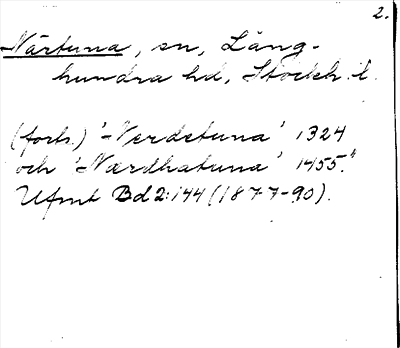 2.
Närtuna, sn, Lång-
hundra hd, Stockh. l.
(forts.) 'Nerdetuna' 1324
och 'Nærdhatuna' 1455."
Ufmt Bd 2:144 (1877-90).